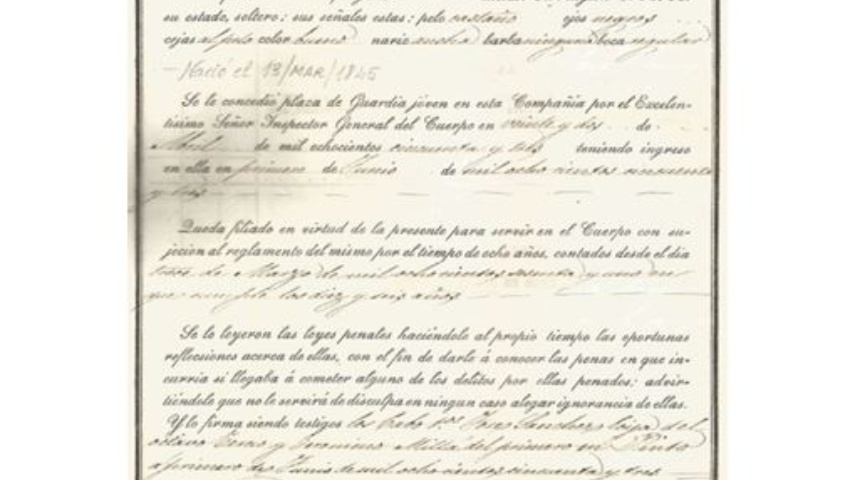 su estado, soltero: sus señales estas: pelo castaño ojos negros
cejas al pelo color bueno nariz ancha barba ninguna boca regular
- Nació el 13/MAR/1845
Se le concedió plaza de Guardia jóven en esta Compañía por el Excelen-
tísimo Señor Inspector General del Cuerpo en veinte y dos de
Abril de mil ochocientos cincuenta y tres teniendo ingreso
en ella en primero de Junio de mil ocho cientos cincuenta
y tres
Queda filiado en virtud de la presente para servir en el Cuerpo con su-
jecion al reglamento del mismo por el tiempo de ocho años, contados desde el dia
trece de Marzo de mil ocho cientos sesenta y uno en
que cumple los diez y seis años
Se le leyeron las leyes penales haciéndole al propio tiempo las oportunas
reflecsiones acerca de ellas, con el fin de darle á conocer las penas en que in-
curria si llegaba á cometer alguno de los delitos por ellas penados; advir-
tiéndole que no le servirá de disculpa en ningun caso alegar ignorancia de ellas.
Y lo firma siendo testigos los Cabo Jose Sanchez del
octavo Tercio y Geronimo Millá del primero en Pinto
a primero de Junio de mil ocho cientos cincuenta y tres